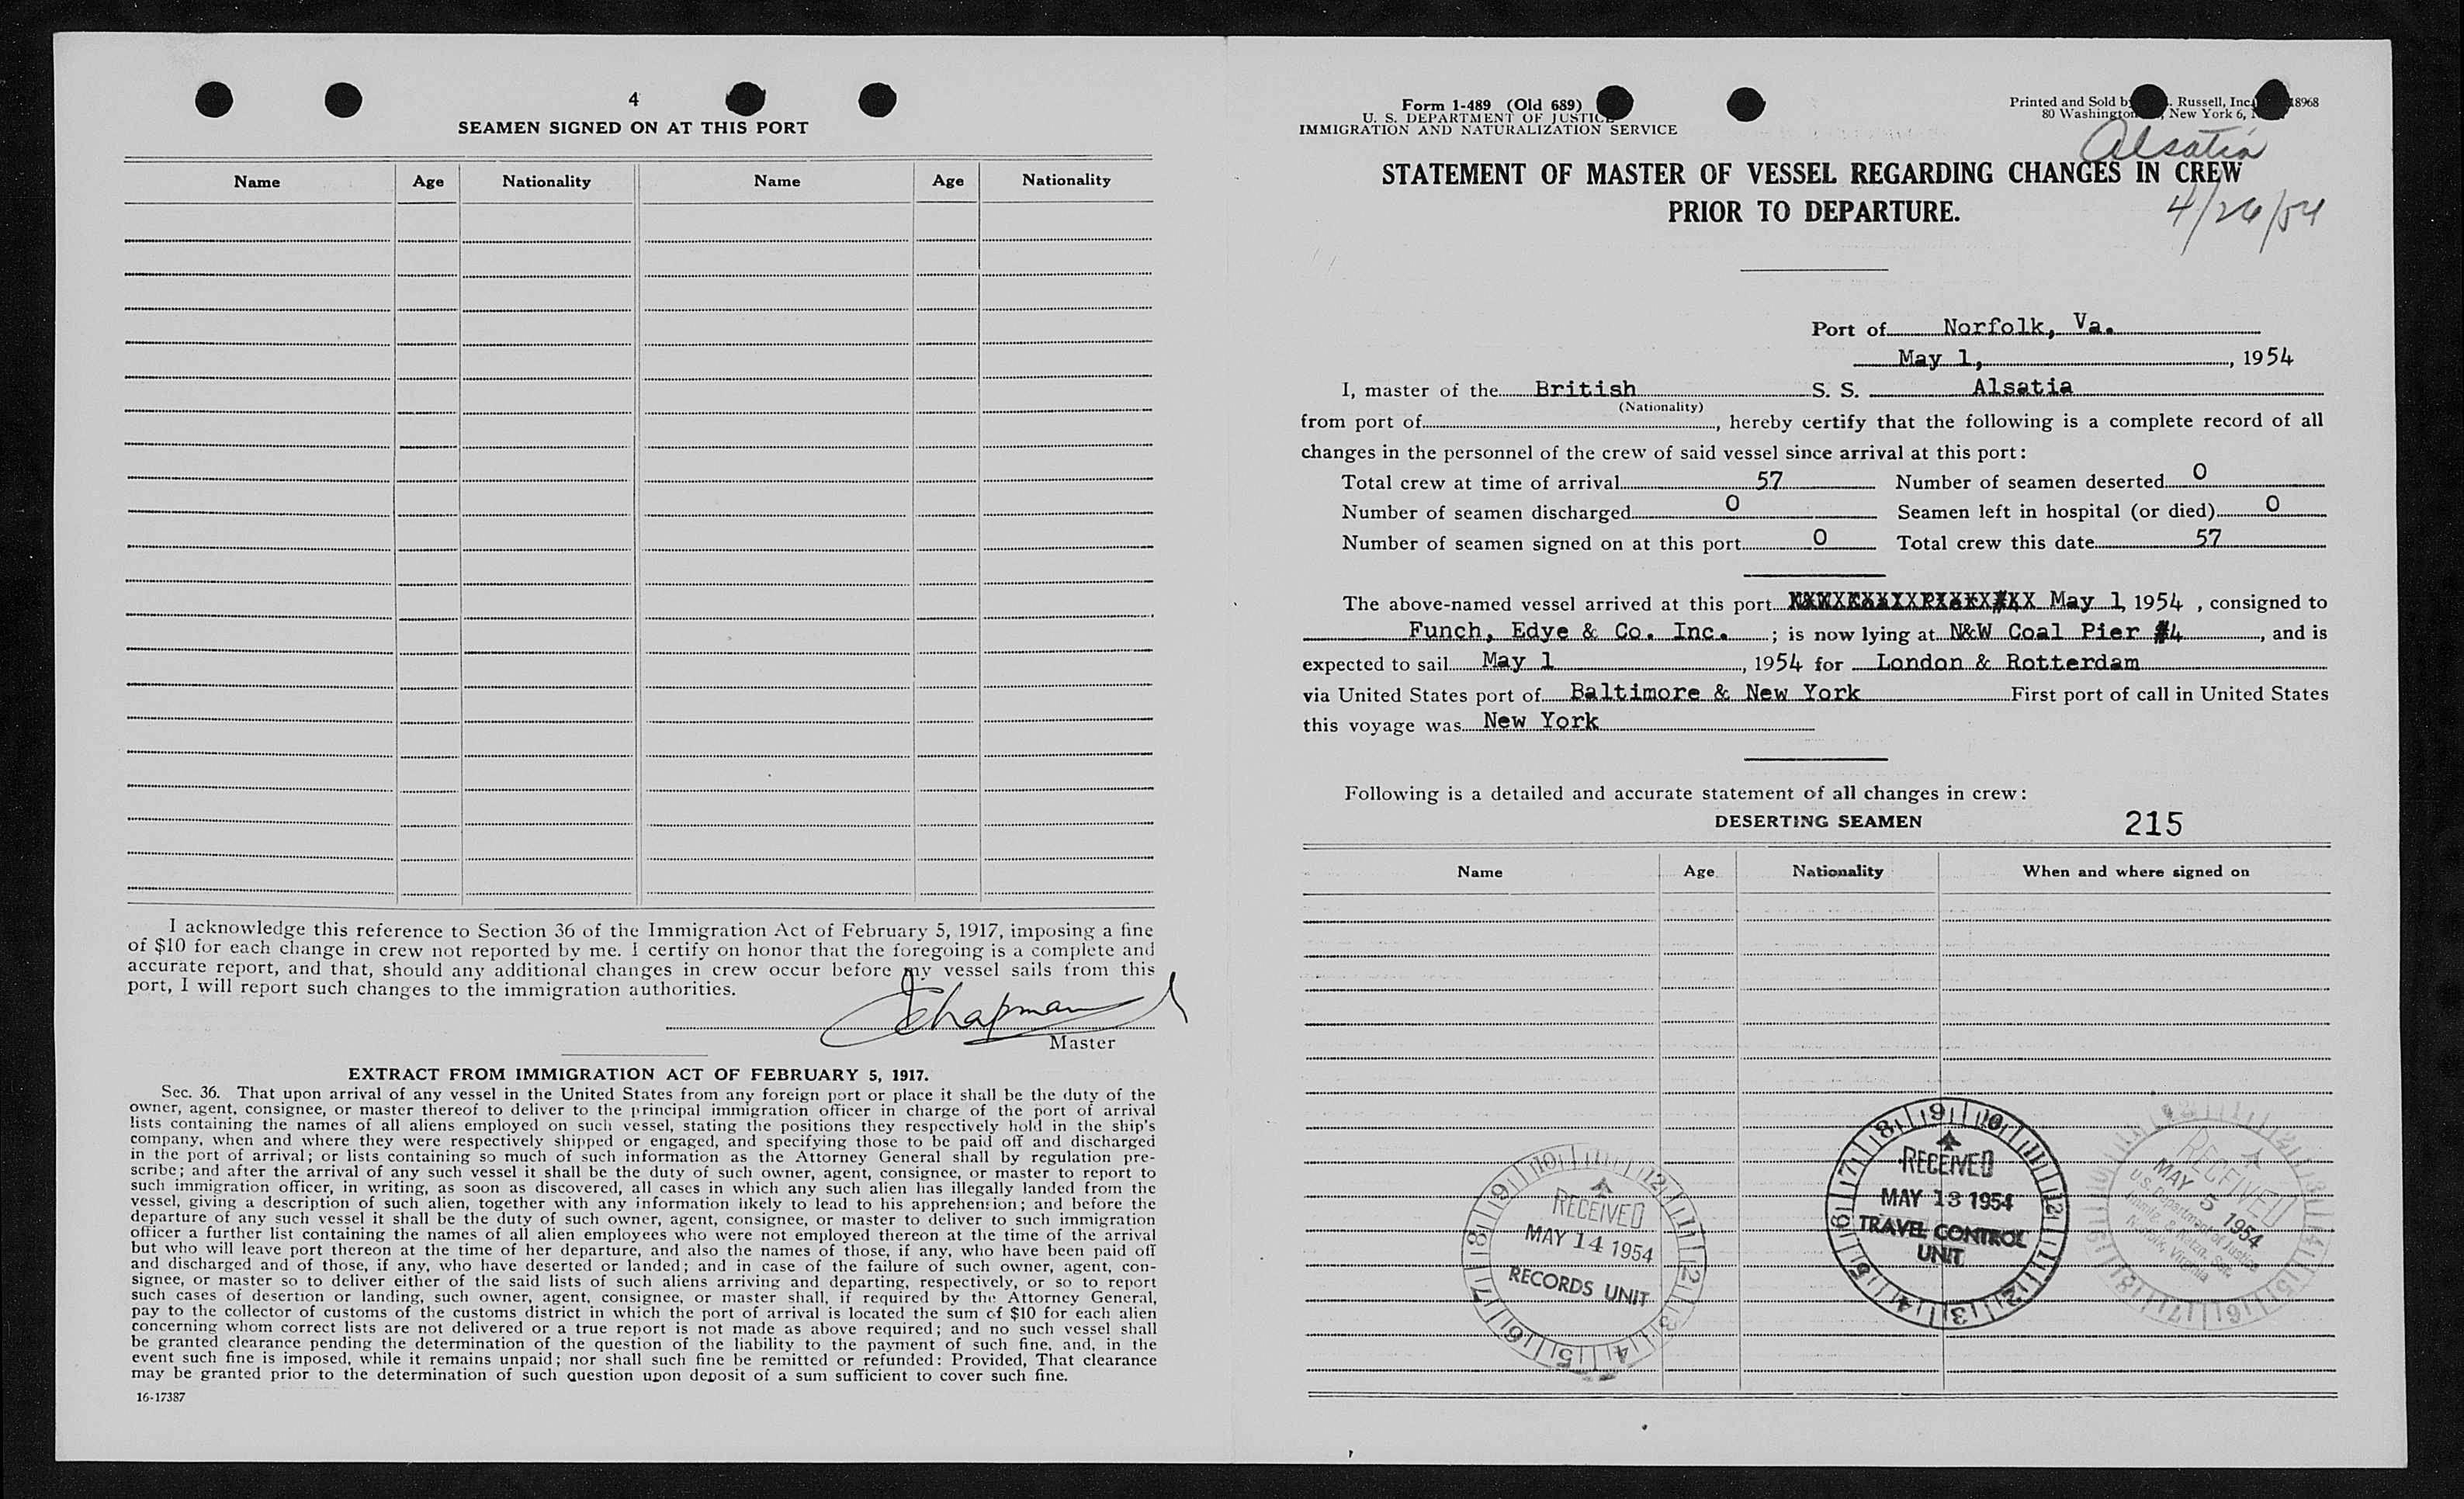 4
SEAMEN SIGNED ON AT THIS PORT
Name Age Nationality Name Age Nationality
I acknowledge this reference to Section 36 of the Immigration Act of February 5, 1917, imposing a fine
of $10 for each change in crew not reported by me. I certify on honor that the foregoing is a complete and
accurate report, and that, should any additional changes in crew occur before my vessel sails from this
port, I will report such changes to the immigration authorities.
Chapman
Master
EXTRACT FROM IMMIGRATION ACT OF FEBRUARY 5, 1917.
Sec. 36. That upon arrival of any vessel in the United States from any foreign port or place it shall be the duty of the
owner, agent, consignee, or master thereof to deliver to the principal immigration officer in charge of the port of arrival
lists containing the names of all aliens employed on such vessel, stating the positions they respectively hold in the ship's
company, when and where they were respectively shipped or engaged, and specifying those to be paid off and discharged
in the port of arrival; or lists containing so much of such information as the Attorney General shall by regulation pre-
scribe; and after the arrival of any such vessel it shall be the duty of such owner, agent, consignee, or master to report to
such immigration officer, in writing, as soon as discovered, all cases in which any such alien has illegally landed from the
vessel, giving a description of such alien, together with any information likely to lead to his apprehension; and before the
departure of any such vessel it shall be the duty of such owner, agent, consignee, or master to deliver to such immigration
officer a further list containing the names of all alien employees who were not employed thereon at the time of the arrival
but who will leave port thereon at the time of her departure, and also the names of those, if any, who have been paid off
and discharged and of those, if any, who have deserted or landed; and in case of the failure of such owner, agent, con-
signee, or master so to deliver either of the said lists of such aliens arriving and departing, respectively, or so to report
such cases of desertion or landing, such owner, agent, consignee, or master shall, if required by the Attorney General,
pay to the collector of customs of the customs district in which the port of arrival is located the sum of $10 for each alien
concerning whom correct lists are not delivered or a true report is not made as above required; and no such vessel shall
be granted clearance pending the determination of the question of the liability to the payment of such fine, and, in the
event such fine is imposed, while it remains unpaid; nor shall such fine be remitted or refunded: Provided, That clearance
may be granted prior to the determination of such question upon deposit of a sum sufficient to cover such fine.
16-17387
Form 1-489 (Old 689)
U. S. DEPARTMENT OF JUSTICE
IMMIGRATION AND NATURALIZATION SERVICE
Printed and Sold by Russell, Inc. 18968
80 Washington New York 6,
Alsatia
STATEMENT OF MASTER OF VESSEL REGARDING CHANGES IN CREW
PRIOR TO DEPARTURE.
4/26/54
Port of Norfolk, Va.
May 1, , 1954
I, master of the British S. S. Alsatia
(Nationality)
from port of , hereby certify that the following is a complete record of all
changes in the personnel of the crew of said vessel since arrival at this port:
Total crew at time of arrival 57 Number of seamen deserted 0
Number of seamen discharged 0 Seamen left in hospital (or died) 0
Number of seamen signed on at this port 0 Total crew this date 57
The above-named vessel arrived at this port May 1, 1954 , consigned to
Funch, Edye & Co. Inc. ; is now lying at N&W Coal Pier #4 , and is
expected to sail May 1 , 1954 for London & Rotterdam
via United States port of Baltimore & New York First port of call in United States
this voyage was New York
Following is a detailed and accurate statement of all changes in crew:
DESERTING SEAMEN 215
Name Age Nationality When and where signed on
RECEIVED
MAY 14 1954
RECORDS UNIT
RECEIVED
MAY 13 1954
TRAVEL CONTROL
UNIT
RECEIVED
MAY 5 1954
U.S. Department of Justice
Immig. & Natzn. Ser.
Norfolk, Virginia